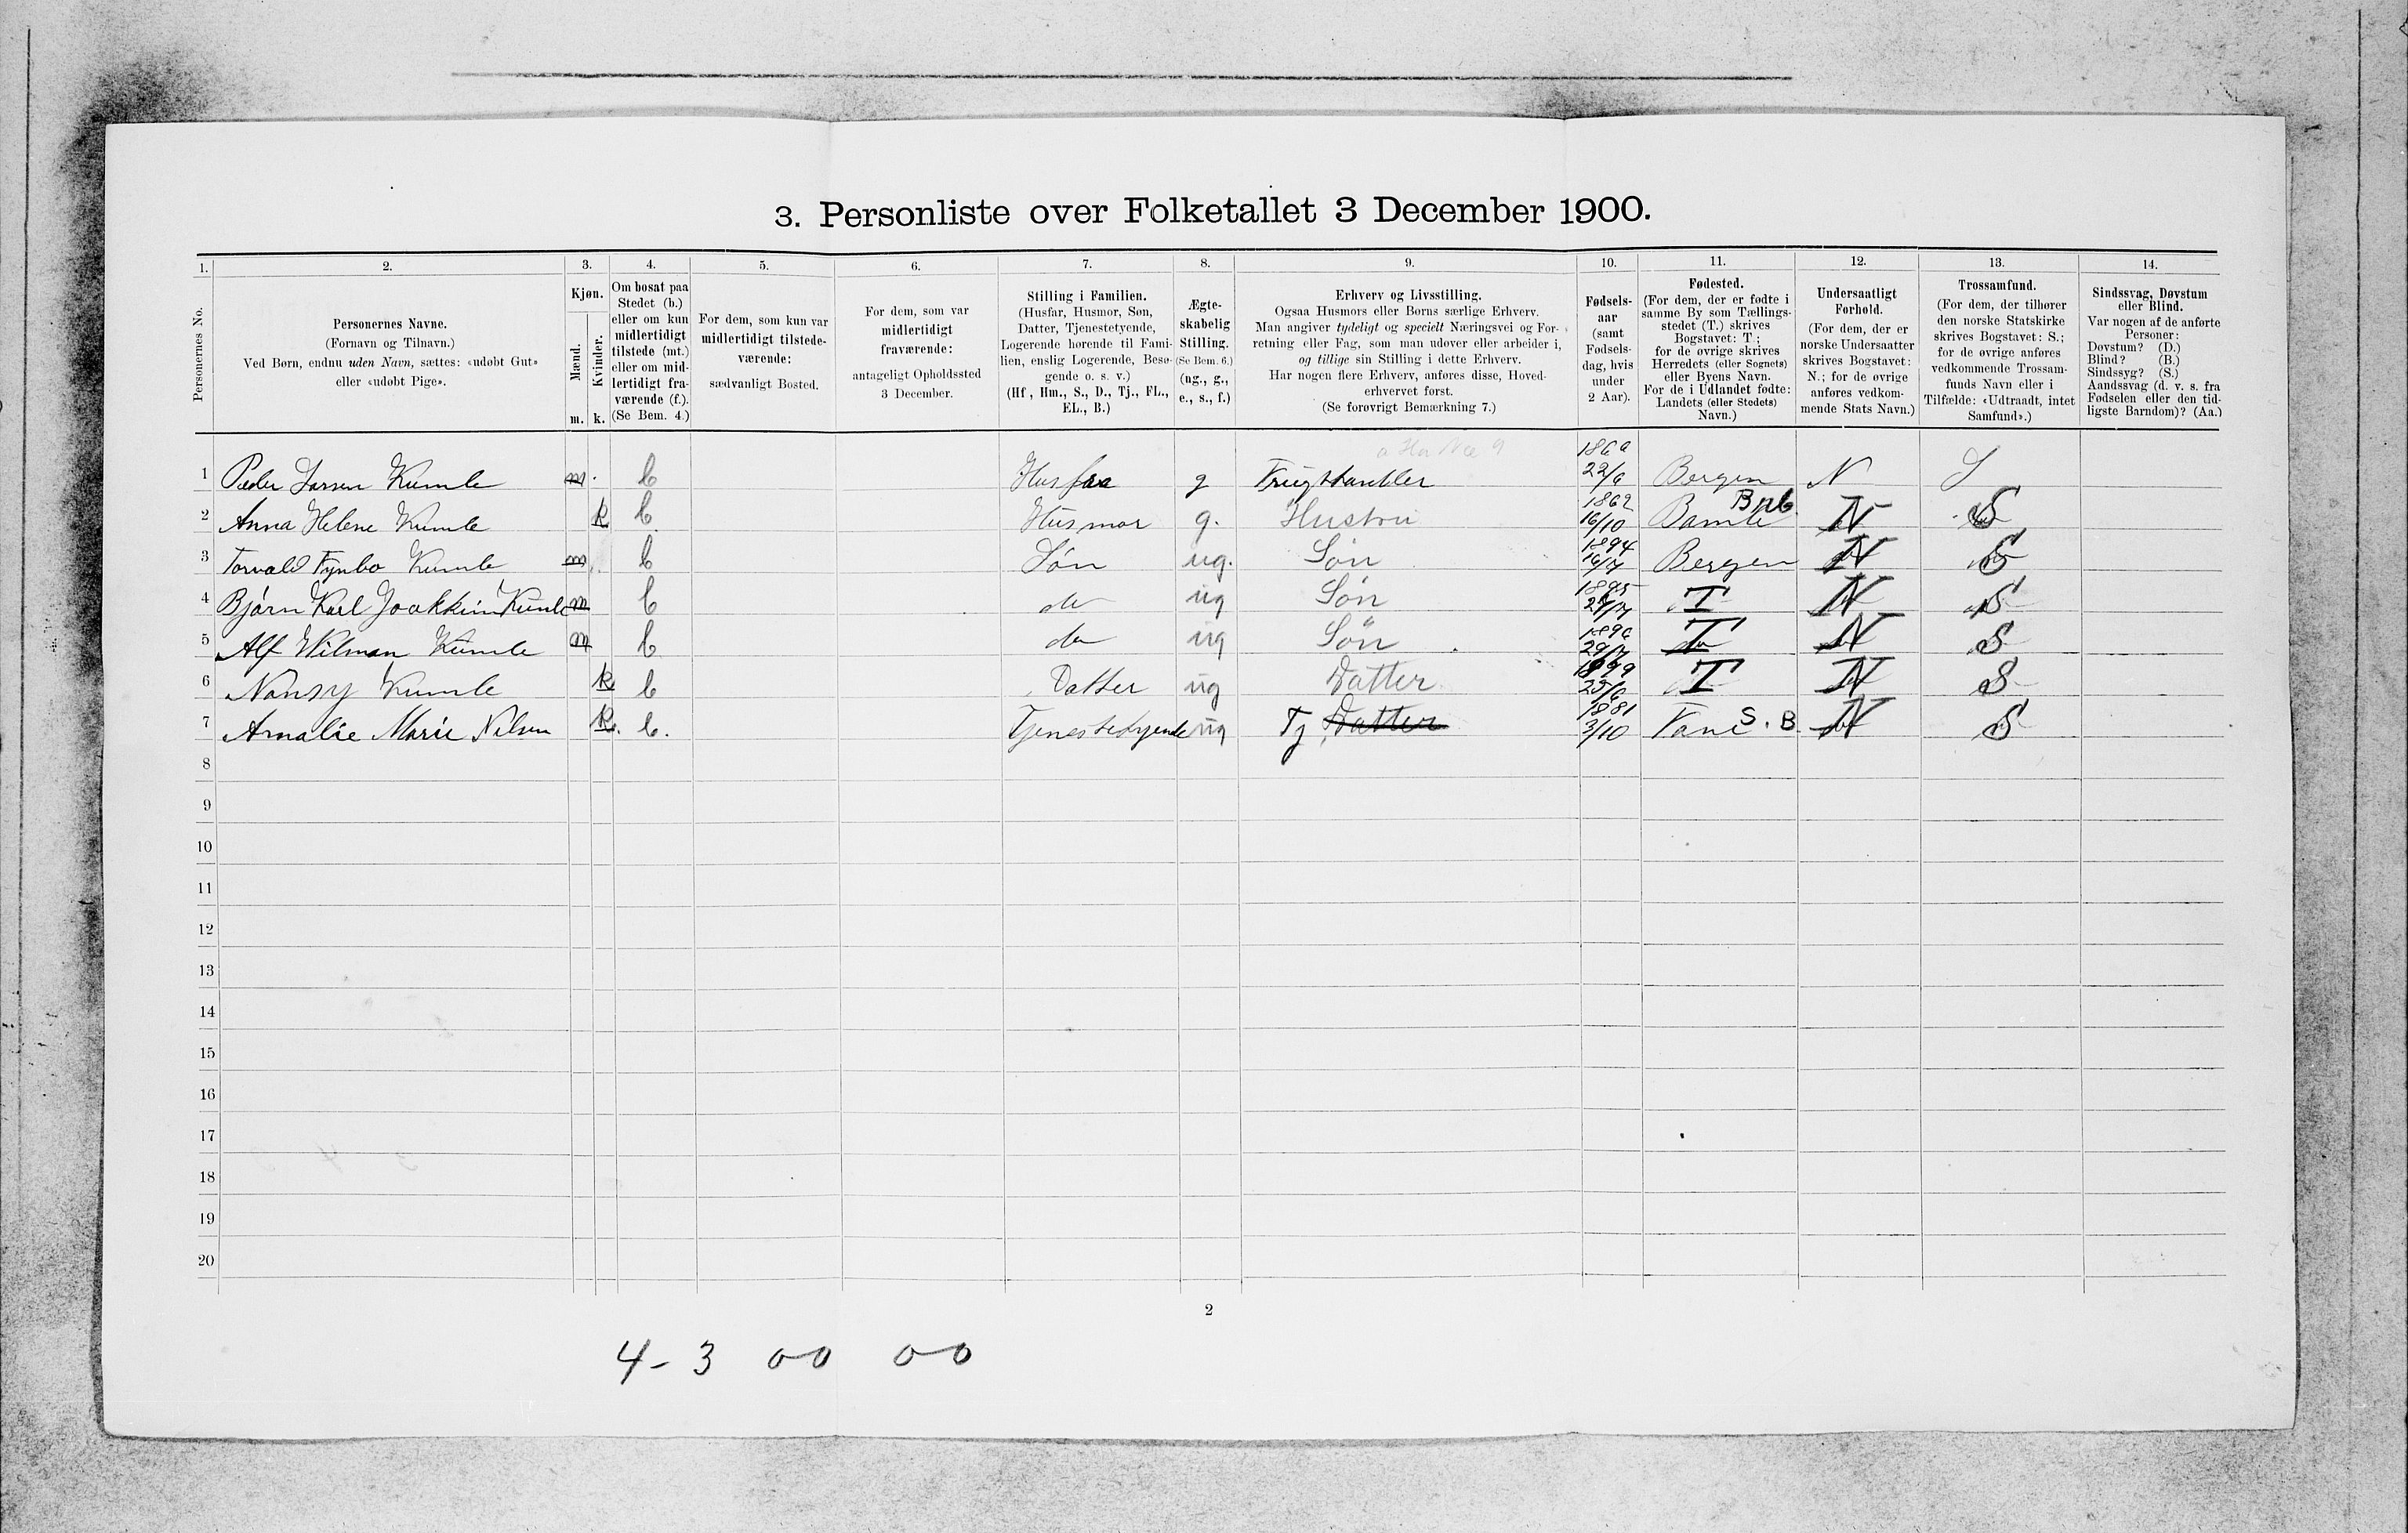 3. Personliste over Folketallet 3 December 1900.
1. 2. 3. 4. 5. 6. 7. 8. 9. 10. 11. 12. 13. 14.
Personernes No.
Personernes Navne.
(Fornavn og Tilnavn.)
Ved Børn, endnu uden Navn, sættes: «udøbt Gut»
eller «udøbt Pige».
Kjøn.
Mænd.
Kvinder.
m. k.
Om bosat paa
Stedet (b.)
eller om kun
midlertidigt
tilstede (mt.)
eller om mid-
lertidigt fra-
værende (f.).
(Se Bem. 4.)
For dem, som kun var
midlertidigt tilstede-
værende:
sædvanligt Bosted.
For dem, som var
midlertidigt
fraværende:
antageligt Opholdssted
3 December.
Stilling i Familien.
(Husfar, Husmor, Søn,
Datter, Tjenestetyende,
Logerende hørende til Fami-
lien, enslig Logerende, Besø-
gende o. s. v.)
(Hf, Hm., S., D., Tj., FL.,
EL., B.)
Ægte-
skabelig
Stilling.
(Se Bem. 6.)
(ug., g.,
e., s., f.)
Erhverv og Livsstilling.
Ogsaa Husmors eller Børns særlige Erhverv.
Man angiver tydeligt og specielt Næringsvei og For-
retning eller Fag, som man udøver eller arbeider i,
og tillige sin Stilling i dette Erhverv.
Har nogen flere Erhverv, anføres disse, Hoved-
erhvervet først.
(Se forøvrigt Bemærkning 7.)
Fødsels-
aar
(samt
Fødsels-
dag, hvis
under
2 Aar).
Fødested.
(For dem, der er fødte i
samme By som Tællings-
stedet (T.) skrives
Bogstavet: T.;
for de øvrige skrives
Herredets (eller Sognets)
eller Byens Navn.
For de i Udlandet fødte:
Landets (eller Stedets)
Navn.)
Undersaatligt
Forhold.
(For dem, der er
norske Undersaatter
skrives Bogstavet:
N.; for de øvrige
anføres vedkom-
mende Stats Navn.)
Trossamfund.
(For dem, der tilhører
den norske Statskirke
skrives Bogstavet: S.;
for de øvrige anføres
vedkommende Trossam-
funds Navn eller i
Tilfælde: «Udtraadt, intet
Samfund».)
Sindssvag, Døvstum
eller Blind.
Var nogen af de anførte
Personer:
Døvstum? (D.)
Blind? (B.)
Sindssyg? (S.)
Aandssvag (d. v. s. fra
Fødselen eller den tid-
ligste Barndom)? (Aa.)
1 Peder Larsen Kumle m. b Husfar g Frugthandler 22/6 Bergen N S
2 Anna Helene Kumle k b. Husmor g. Hustru 1862 16/10 Bamle Brb. N S
3 Torvald Fynbo Kumle m b Søn ug. Søn 1894 16/7 Bergen N S
4 Bjørn Karl Joakkim Kumle m b do ug Søn 1895 T N S
5 Alf Wilman Kumle m b do ug Søn 1896 29/7 T N S
6 Nansy Kumle k b Datter ug Datter T N S
7 Amalie Marie Nilsen k. b. Tjenestetyende ug Tj Datter 1881 3/10 Fane S. B. N S
8
9
10
11
12
13
14
15
16
17
18
19
20
2
4 - 3 0-0 0-0